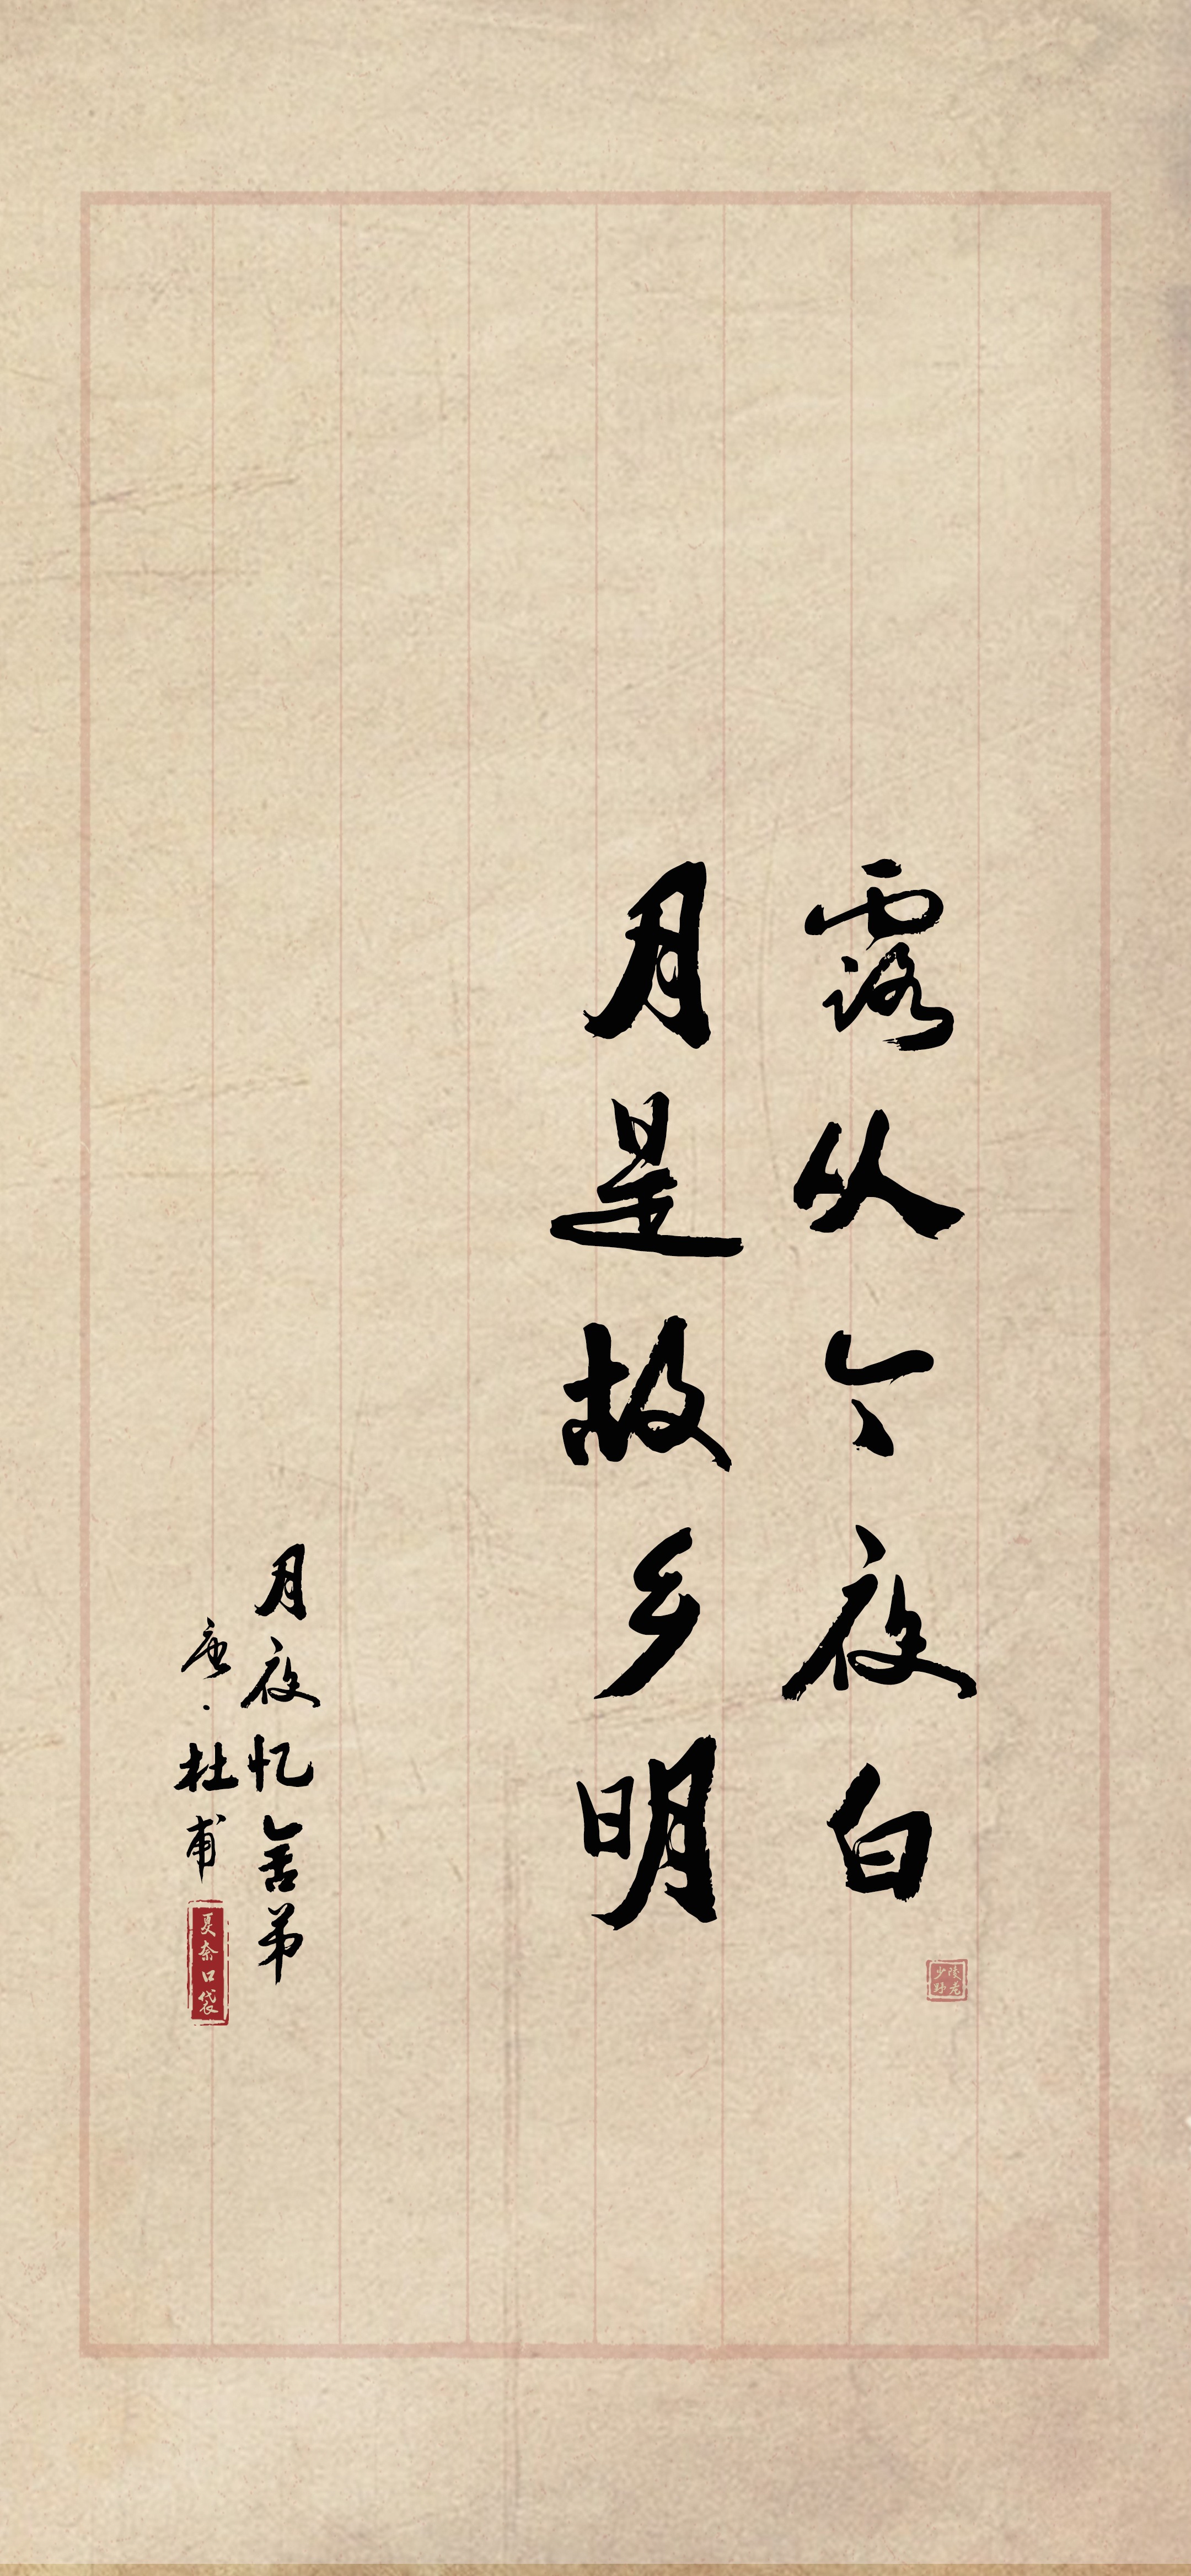 露从今夜白
月是故乡明
月夜忆舍弟
唐·杜甫
夏奈口袋
少陵野老